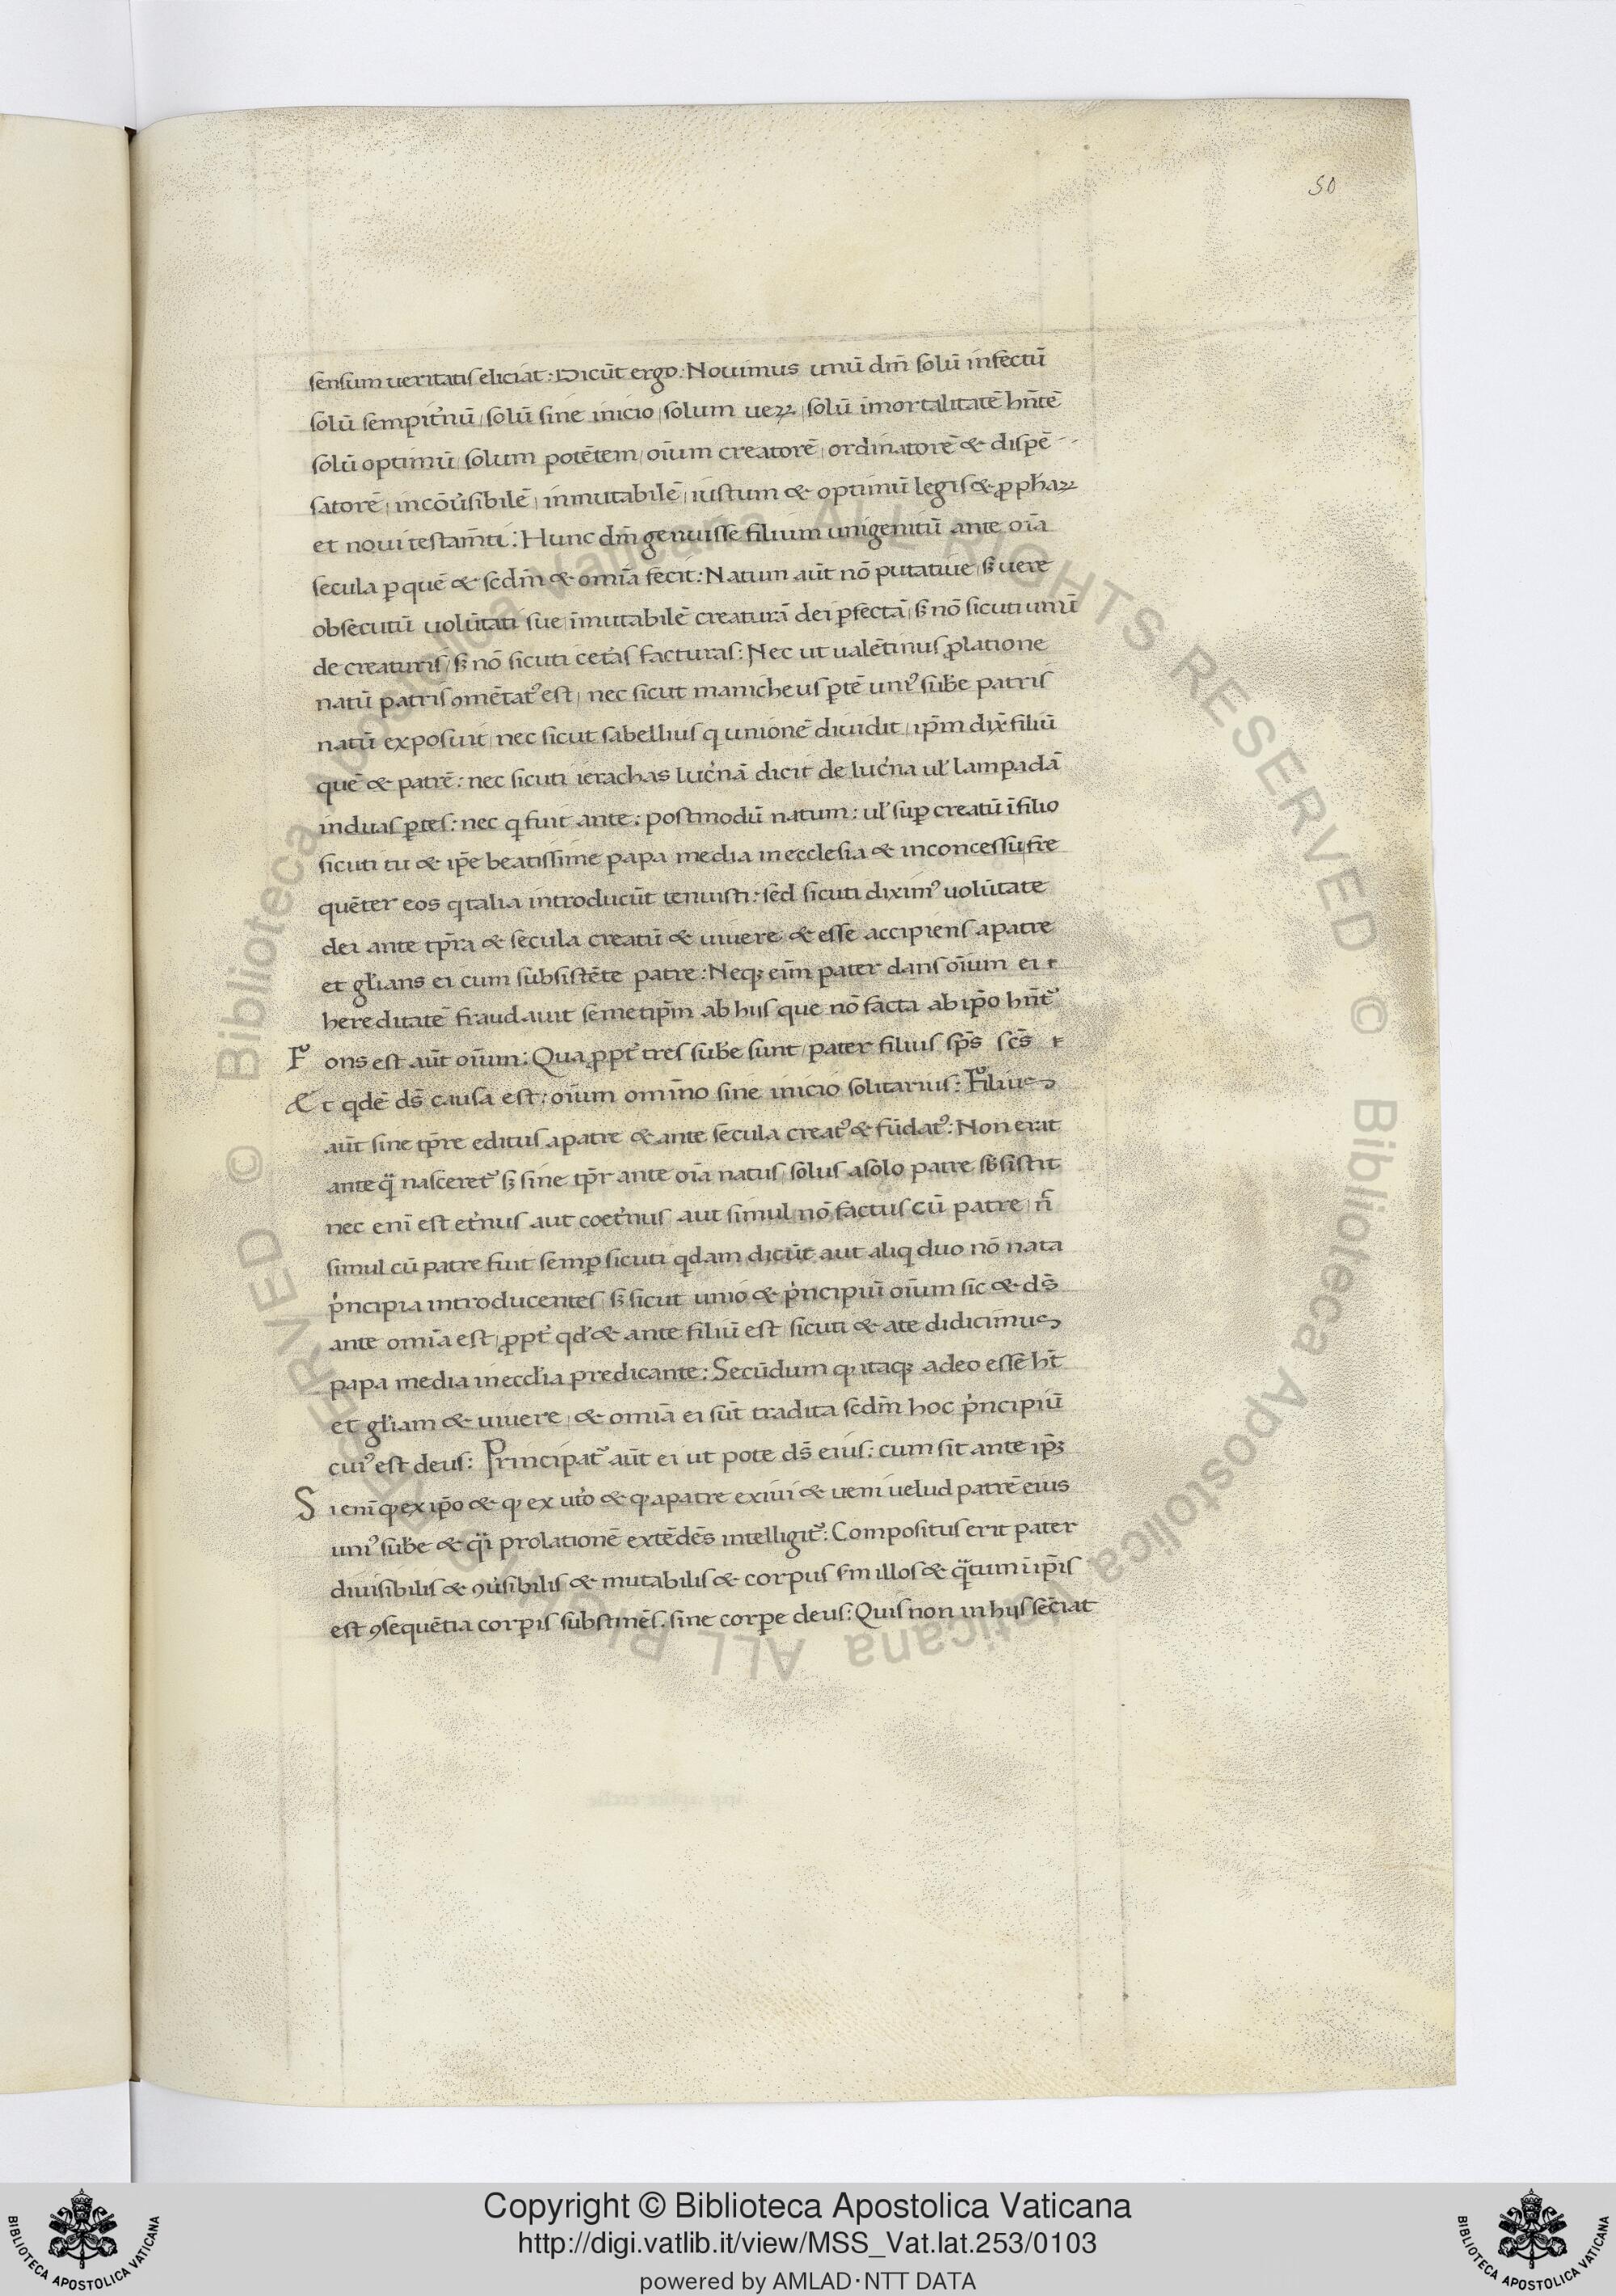 50
sensum ueritatis eliciat: Dicūt ergo: Nouimus unū dm̄ solū infectū
solū sempit̓nū, solū sine inicio, solum ueꝝ, solū īmortalitatē hn̄tē
solū optimū, solum potētem, oīum creatorē, ordinatorē & dispē
satorē, incōu̓sibilē, inmutabilē, iustum & optimū legis & ꝓphaꝝ
et noui testam̄ti: Hunc dm̄ genuisse filium unigenitū ante oīa
secula ꝑ quē & sedm̄ & omīa fecit: Natum aūt nō putatiue, sꝫ uere
obsecutū uolūtati sue, īmutabilē creaturā dei ꝑfectā, sꝫ nō sicuti unū
de creaturis, sꝫ nō sicuti cet̓as facturas: Nec ut ualētinus ꝓlatione
natū patris ꝯmētatꝰ est, nec sicut manicheus ꝑtē unīꝰ sub̄e patris
natū exposuit, nec sicut sabellius q unionē diuidit, ip̄m dix̄ filiū
quē & patrē: nec sicuti ierachas luc̓nā dicit de luc̓na ul̓ lampadā
in duas ꝑtes: nec q fuit ante: postmodū natum: ul̓ suꝑ creatū ī filio
sicuti tu & ip̄e beatissime papa media in ecclesia & in concessu, fre
quēter eos q talia introducūt tenuisti: sed sicuti diximꝰ uolūtate
dei ante tp̄ra & secula creatū & uiuere & esse accipiens a patre
et gl̓ians ei cum subsistēte patre: Neqꝫ eīm pater dans oīum ei
hereditatē fraudauit semetip̄m ab hijs que nō facta ab ip̄o hn̄t᷑
Fons est aūt oīum: Qua ꝓpt̓ tres sub̄e sunt, pater filius sp̄s sc̄s
Et qdē ds̄ causa est: oīum omīno sine inicio solitarius: Filius
aūt sine tp̄re editus a patre & ante secula creatꝰ & fūdatꝰ: Non erat
ante q̈ nasceret᷑ sꝫ sine tp̄r ante oīa natus, solus a solo patre sb̄sistit
nec enī est et̓nus aut coet̓nus aut simul nō factus cū patre, n̄
simul cū patre fuit semꝑ sicuti qdam dicūt aut aliq duo nō nata
p̓ncipia introducentes, sꝫ sicut unio & p̓ncipiū oīum sic & ds̄
ante omīa est, ꝓpt̓ qd̓ & ante filiū est, sicuti & a te didicimus
papa media in eccl̓ia predicante: Secūdum qꝫ itaqꝫ a deo essē ht̄
et gl̓iam & uiuere, & omīa ei sūt tradita sedm̄ hoc p̓ncipiū
cuiꝰ est deus: Principat᷑ aūt ei ut pote ds̄ eius: cum sit ante ip̄ꝫ
Si enī qꝫ ex ip̄o & qꝫ ex ut̓o & qꝫ a patre exiui & ueni uelud patrē eius
uniꝰ sub̄e & q̈i prolationē extēdēs intelligit᷑: Compositus erit pater
diuisibilis & ꝯu̓sibilis & mutabilis & corpus s̄m illos & q̈tum ī ip̄is
est ꝯsequētia corꝑis substinēs. sine corꝑe deus: Quis non in hijs sēciat
Copyright © Biblioteca Apostolica Vaticana
http://digi.vatlib.it/view/MSS_Vat.lat.253/0103
powered by AMLAD·NTT DATA